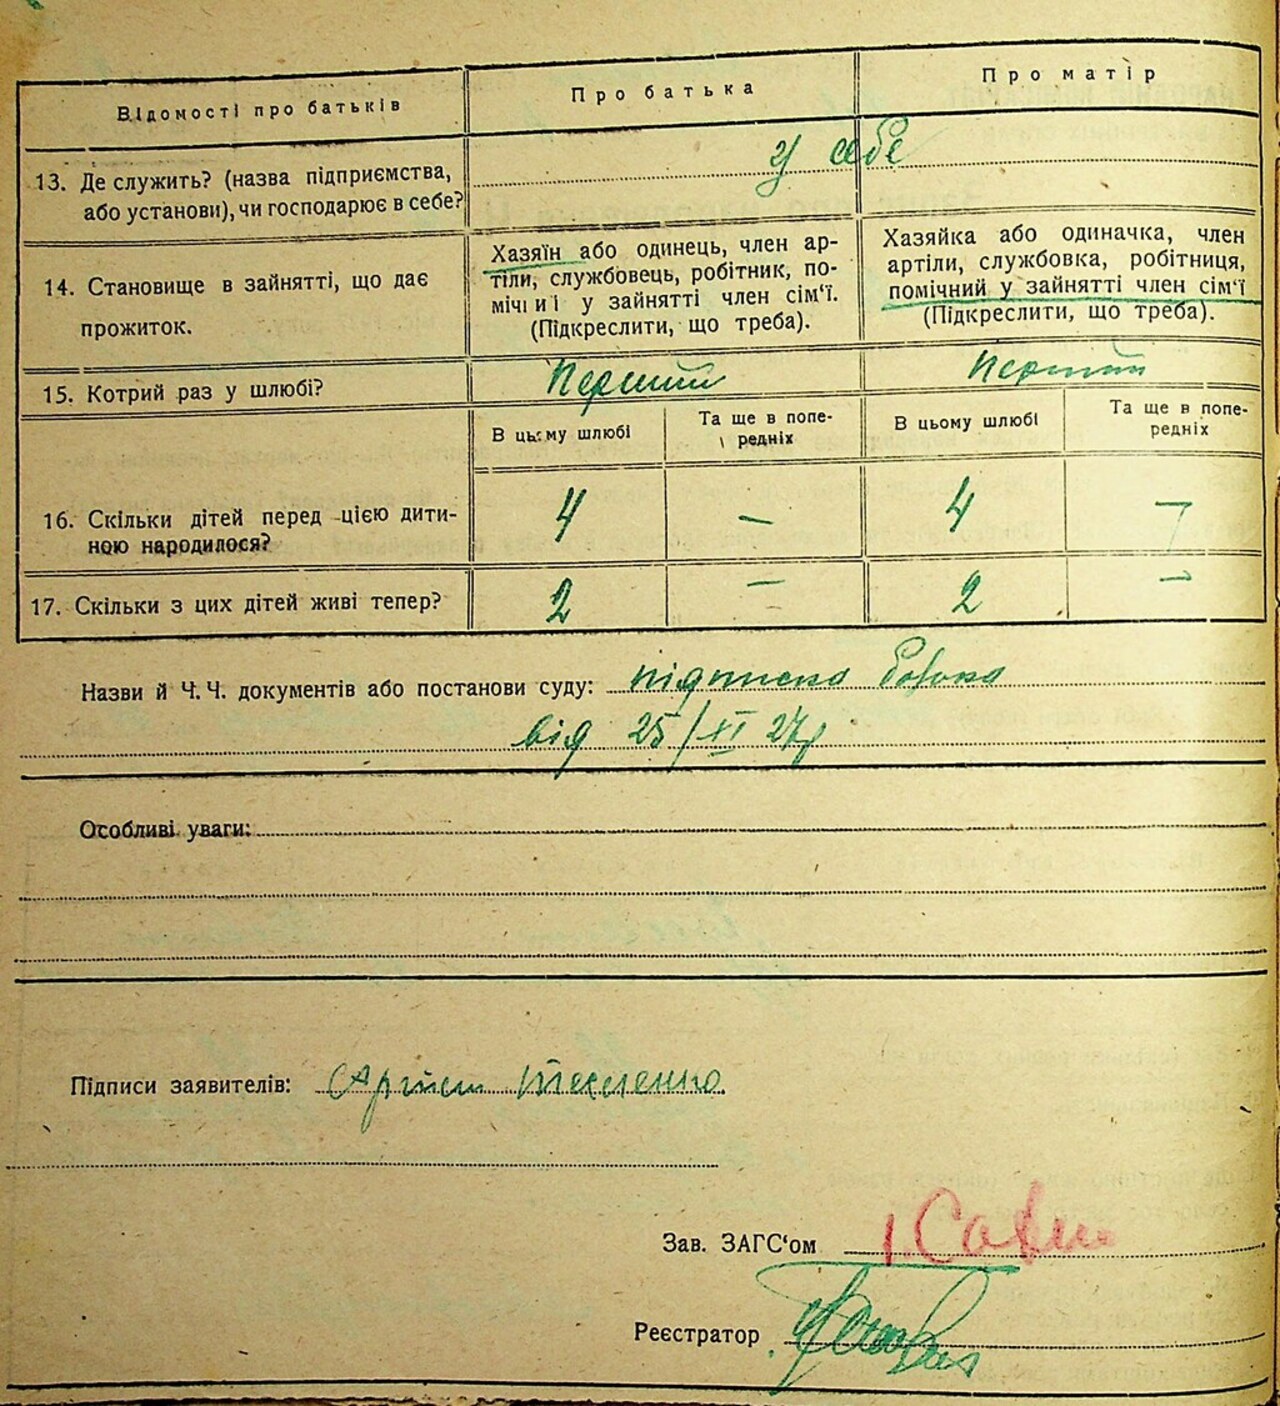 Відомості про батьків
Про батька
Про матір
13. Де служить? (назва підприємства,
або установи), чи господарює в себе?
у себе
14. Становище в зайнятті, що дає
прожиток.
Хазяїн або одинець, член ар-
тіли, службовець, робітник, по-
мічний у зайнятті член сім'ї.
(Підкреслити, що треба).
Хазяйка або одиначка, член
артіли, службовка, робітниця,
помічний у зайнятті член сім'ї
(Підкреслити, що треба).
15. Котрий раз у шлюбі?
Перший
Перший
В цьому шлюбі
Та ще в попе-
редніх
В цьому шлюбі
Та ще в попе-
редніх
16. Скільки дітей перед цією дити-
ною народилося?
4
—
4
—
17. Скільки з цих дітей живі тепер?
2
—
2
—
Назви й Ч. Ч. документів або постанови суду: підписка
від 25/XI 27р
Особливі уваги:
Підписи заявителів:
Зав. ЗАГС'ом
Реєстратор